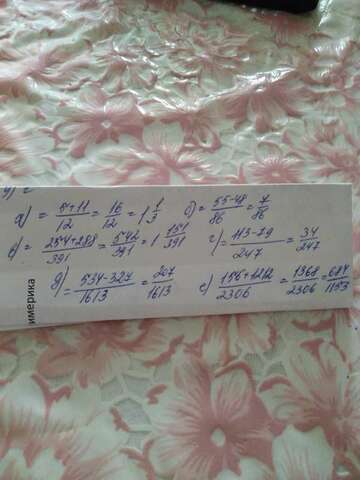 а) = 5+11/12 = 16/12 = 1 1/3 б) = 55-48/86 = 7/86
в) = 254+288/391 = 542/391 = 1 151/391 г) = 113-79/247 = 34/247
д) = 534-327/1613 = 207/1613 е) = 156+1212/2306 = 1368/2306 = 684/1153
имерика